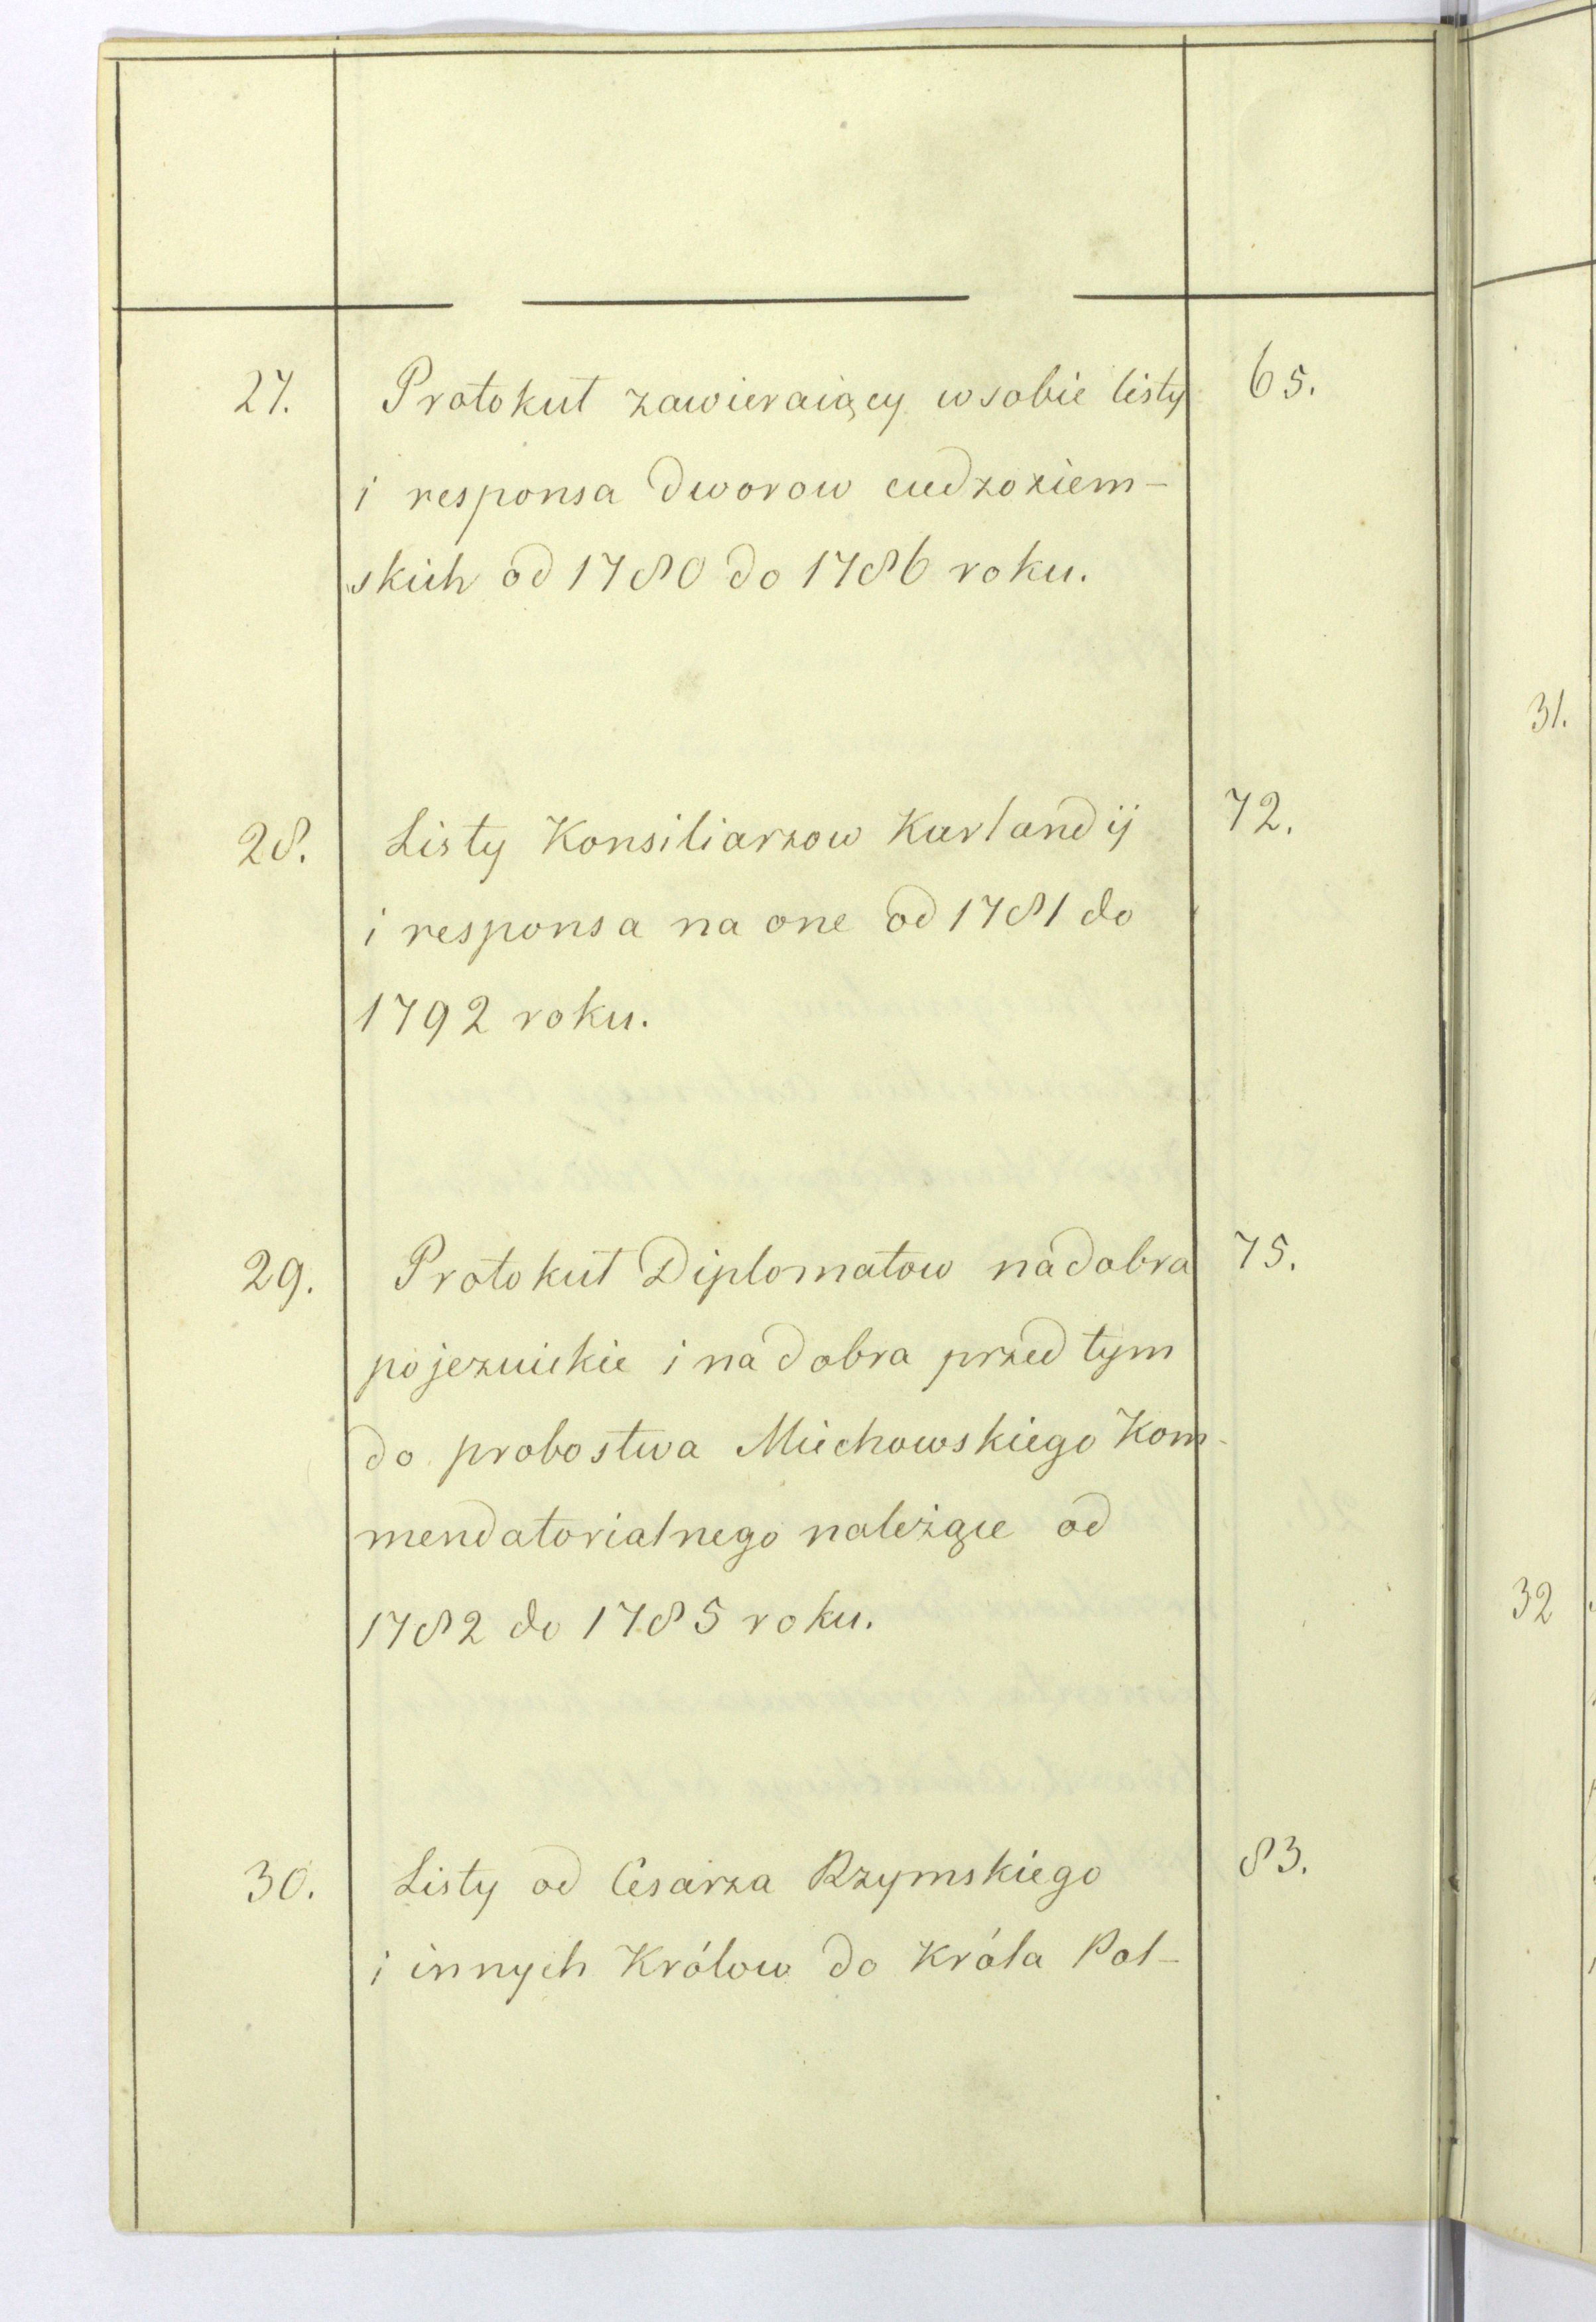 27. Protokuł zawieraiący w sobie listy 65.
i responsa dworow cudzoziem-
skich od 1780 do 1786 roku.
28. Listy Konsiliarzow Kurlandij 72.
i responsa na one od 1781 do
1792 roku.
29. Protokuł Diplomatow na dobra 75.
pojezuickie i na dobra przed tym
do probostwa Miechowskiego Kom-
mendatorialnego należące od
1782 do 1785 roku.
30. Listy od Cesarza Rzymskiego 83.
i innych Królow do Króla Pol-
31.
32